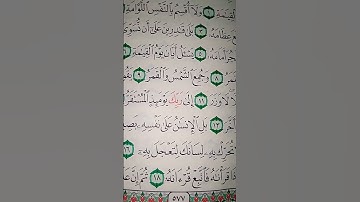 ٱلْقِيَٰمَةِ ١ وَلَآ أُقْسِمُ بِٱلنَّفْسِ ٱللَّوَّامَةِ
عِظَامَهُۥ ٣ بَلَىٰ قَٰدِرِينَ عَلَىٰٓ أَن نُّسَوِّىَ
أَمَامَهُۥ ٥ يَسْـَٔلُ أَيَّانَ يَوْمُ ٱلْقِيَٰمَةِ ٦
٨ وَجُمِعَ ٱلشَّمْسُ وَٱلْقَمَرُ ٩
لَا وَزَرَ ١١ إِلَىٰ رَبِّكَ يَوْمَئِذٍ ٱلْمُسْتَقَرُّ
١٣ بَلِ ٱلْإِنسَٰنُ عَلَىٰ نَفْسِهِۦ
تُحَرِّكْ بِهِۦ لِسَانَكَ لِتَعْجَلَ بِهِۦٓ ١٦
قَرَأْنَٰهُ فَٱتَّبِعْ قُرْءَانَهُۥ ١٨ ثُمَّ إِنَّ
٥٧٧